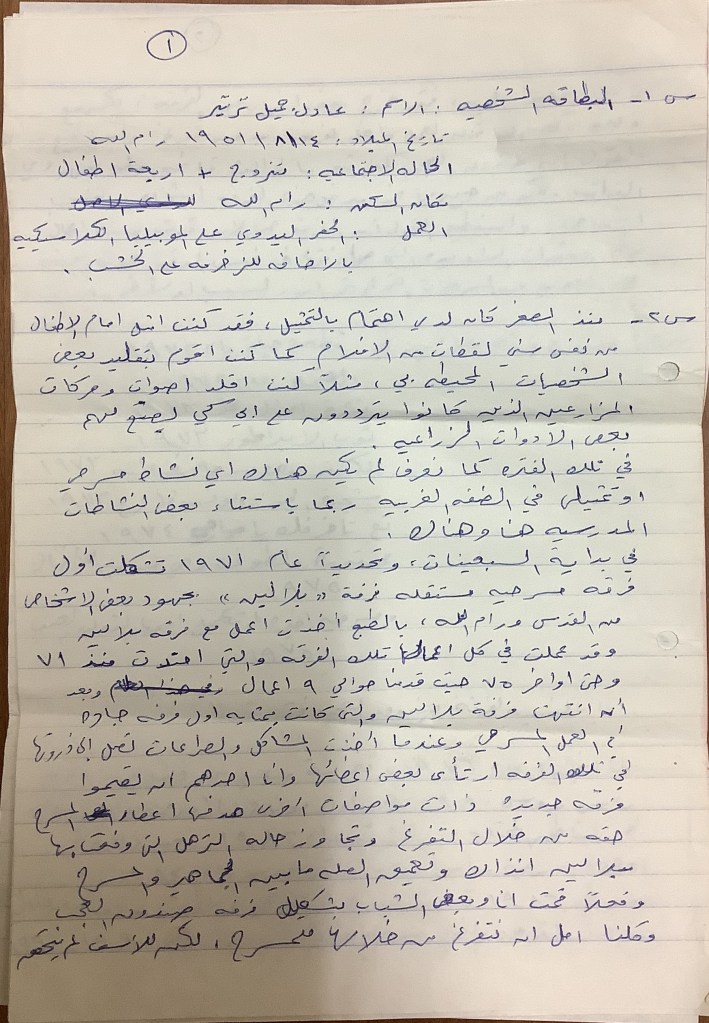 ١
س ١- البطاقه الشخصيه : الاسم : عادل جميل ترتير
تاريخ الميلاد : ١٤/٨/١٩٥١ رام الله
الحاله الاجتماعيه : متزوج + اربعة اطفال
مكان السكن : رام الله
العمل : الحفر اليدوي على الموبيليا الكلاسيكيه
بالاضافه للزخرفه على الخشب .
س٢- منذ الصغر كان لدي اهتمام بالتمثيل ، فقد كنت امثل امام الاطفال
من نفس سني لقطات من الافلام كما كنت اقوم بتقليد بعض
الشخصيات المحيطه بي ، مثلاً كنت اقلد اصوات وحركات
المزارعين الذين كانوا يترددون على ابي كي يصنع لهم
بعض الادوات الزراعيه .
في تلك الفتره كما نعرف لم يكن هناك اي نشاط مسرحي
او تمثيلي في الضفه الغربيه ربما باستثناء بعض النشاطات
المدرسيه هنا وهناك .
في بداية السبعينات ، وتحديداً عام ١٩٧١ تشكلت أول
فرقه مسرحيه مستقله فرقة " بلالين " بجهود بعض الاشخاص
من القدس ورام الله ، بالطبع اخذت اعمل مع فرقه بلالين
وقد عملت في كل اعمال تلك الفرقه والتي امتدت منذ ٧١
وحتى اواخر ٧٥ حيث قدمنا حوالي ٩ اعمال وبعد
أن انتهت فرقة بلالين والتي كانت بمثابه اول فرقه جاده
في العمل المسرحي وعندما أخذت المشاكل والصراعات تصل إلى ذروتها
في تلك الفرقه ارتأى بعض اعضائها وانا احدهم ان يقيموا
فرقه جديدة ذات مواصفات أخرى هدفها اعطاء المسرح
حقه من خلال التفرغ وتجاوز حاله الترهل التي وقعت بها
بلالين انذاك وتعميق الصله ما بين الجماهير والمسرح
وفعلاً قمت انا وبعض الشباب بتشكيل فرقه صندوق العجب
وكلنا امل ان نتفرغ من خلالها للمسرح ، لكن للأسف لم يتحقق